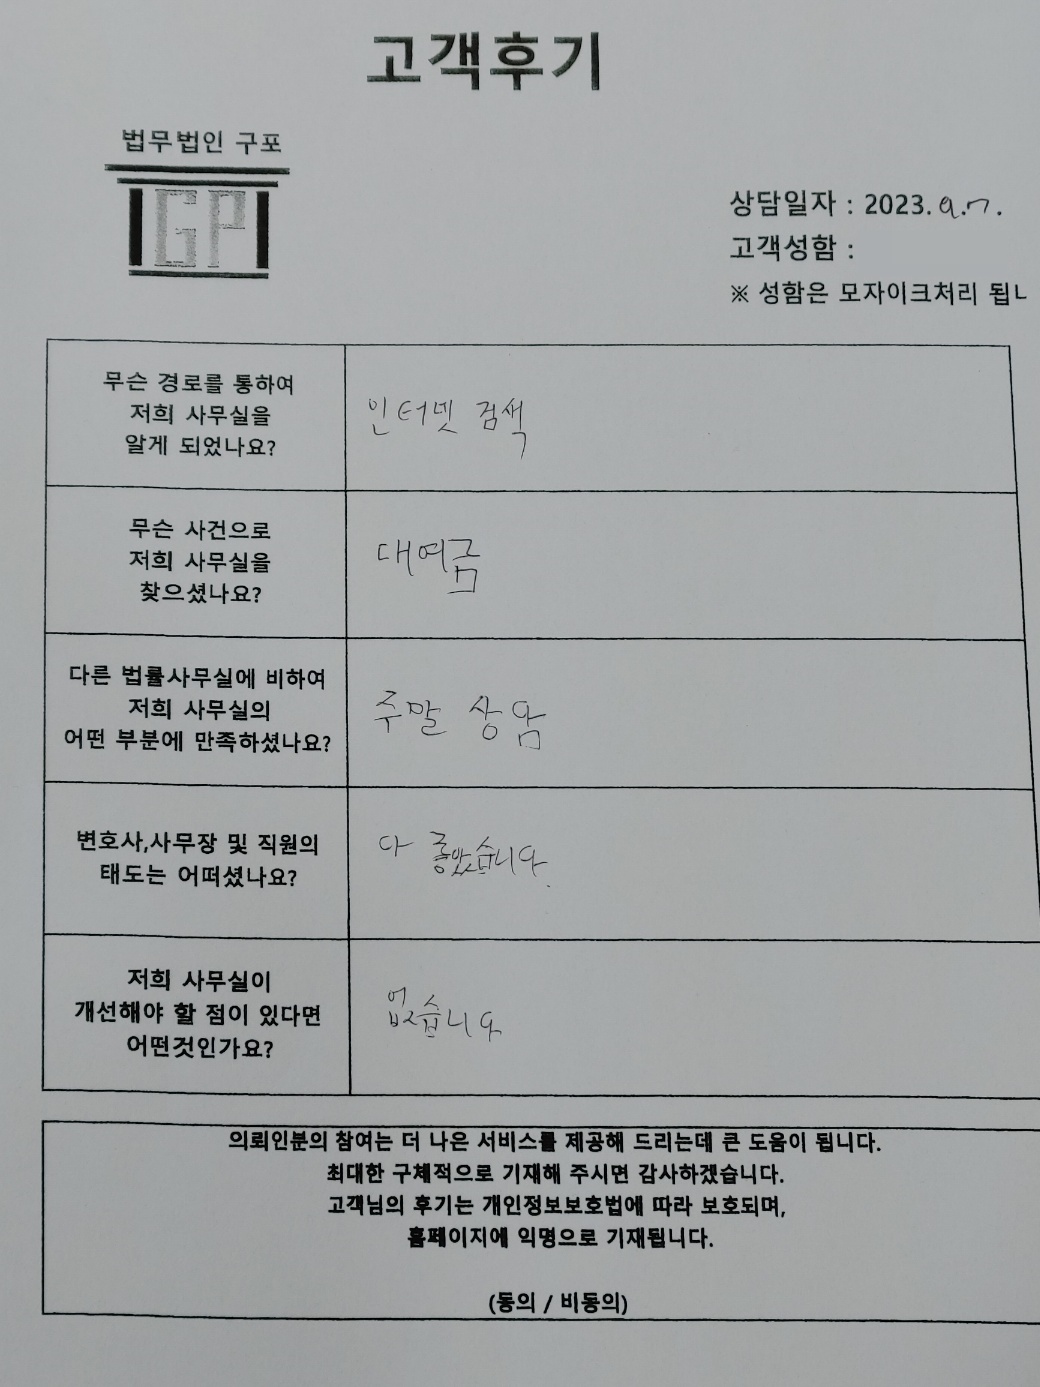 고객후기
법무법인 구포
GP
상담일자 : 2023. 9.7.
고객성함 :
※ 성함은 모자이크처리 됩ㄴ
무슨 경로를 통하여
저희 사무실을
알게 되었나요?
인터넷 검색
무슨 사건으로
저희 사무실을
찾으셨나요?
대여금
다른 법률사무실에 비하여
저희 사무실의
어떤 부분에 만족하셨나요?
주말 상담
변호사,사무장 및 직원의
태도는 어떠셨나요?
다 좋았습니다.
저희 사무실이
개선해야 할 점이 있다면
어떤것인가요?
없습니다
의뢰인분의 참여는 더 나은 서비스를 제공해 드리는데 큰 도움이 됩니다.
최대한 구체적으로 기재해 주시면 감사하겠습니다.
고객님의 후기는 개인정보보호법에 따라 보호되며,
홈페이지에 익명으로 기재됩니다.
(동의 / 비동의)